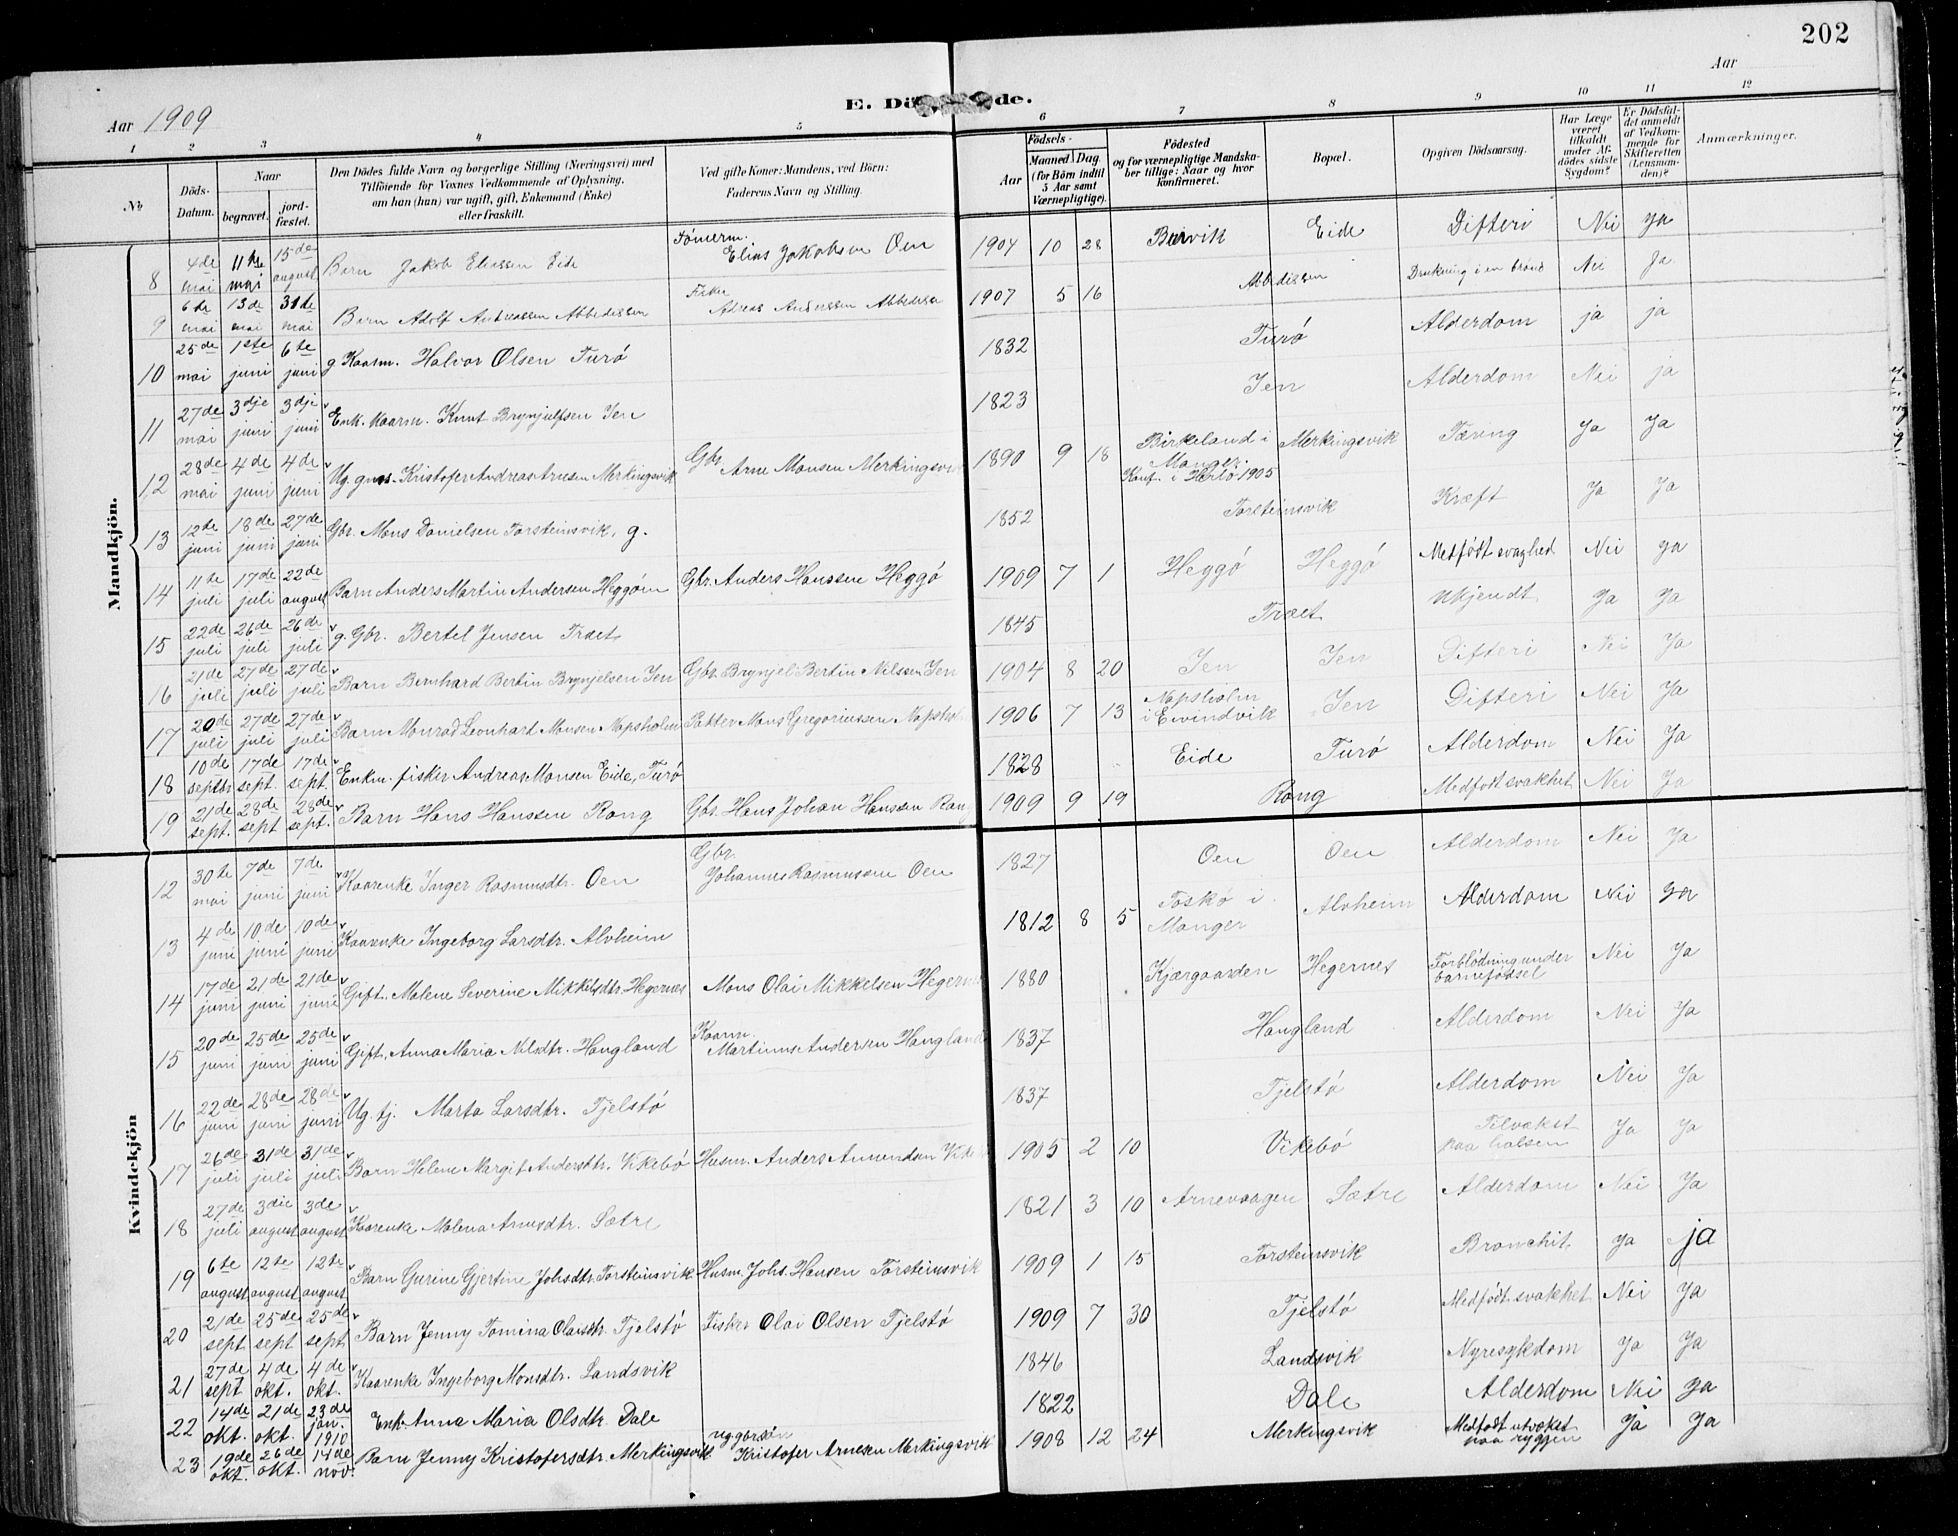 202
Aar 1909
E. Dö de.
Aar
1 2 3 4 5 6 7 8 9 10 11 12
No
Döds-Datum.
Naar
begravet.
jord-fæstet.
Den Dödes fulde Navn og borgerlige Stilling (Næringsvei) med
Tilföiende for Voxnes Vedkommende af Oplysning,
om han (hun) var ugift, gift, Enkemand (Enke)
eller fraskilt.
Ved gifte Koner: Mandens, ved Börn:
Faderens Navn og Stilling.
Födsels-
Aar
Maaned Dag.
(for Börn indtil
5 Aar samt
Værnepligtige).
Födested
og for værnepligtige Mandska-
ber tillige: Naar og hvor
konfirmeret.
Bopæl.
Opgiven Dödsaarsag.
Har Læge
været
tilkaldt
under Af-
dödes sidste
Sygdom?
Er Dödsfal-
det anmeldt
af Vedkom-
mende for
Skifteretten
(Lensman-
den)?
Anmærkninger.
Mandkjön.
8 4de mai 11te mai 15de august Barn Jakob Eliassen Eide Tömerm. Elias Jakobsen Oen 1904 10 28 Eide Difteri Nei ja
9 6te mai 13de mai 31te mai Barn Adolf Andreassen Abbedissen Fisker Andreas Anderssen Abbedissen 1907 5 16 Abbedissen Drukning i en brönd Nei Ja
10 25de mai 1ste juni 6te juni g Kaarm. Halvor Olsen Turö 1832 Turö Alderdom ja ja
11 27de mai 3dje juni 3dje juni Enk. kaarm. Knut Brynjulfsen Jen 1823 Jen Alderdom Nei ja
12 28de mai 4de juni 4de juni Ug. gms. Kristofer Andreas Arnesen Merkingsvik Gbr. Arne Monsen Merkingsvik 1890 9 18 Birkeland i Manger. Konf. i Herlö 1905 Merkingsvik Tæring Ja Ja
13 12te juni 18de juni 27de juni Gbr. Mons Danielsen Torsteinsvik, g. 1852 Torsteinsvik Kræft Ja Ja
14 11te juli 17de juli 22de august Barn Anders Martin Andersen Heggöen Gbr. Anders Hanssen Heggö 1909 7 1 Heggö Heggö Medfödt svaghed Nei ja
15 22de juli 26de juli 26de juli g. Gbr. Bertel Jensen Træet 1845 Træet Ukjendt Ja Ja
16 21de juli 27de juli 27de juli Barn Bernhard Bertin Brynjelsen Jen Gbr. Brynjel Bertin Nilssen Jen 1904 8 20 Jen Jen Difteri Nei Ja
17 20de juli 27de juli 27de juli Barn Monrad Leonhard Monsen Napsholm Mons Gregoriussen Napsholm 1906 7 13 Napsholm i Eivindvik Jen Difteri Nei Ja
18 10de septbr 17de sept. 17de sept. Enkm. fisker Andreas Monsen Eide, Turö 1828 Eide Turö Alderdom Nei Ja
19 21de sept. 28de sept 28de sept. Barn Hans Hanssen Rong Gbr. Hans Johan Hanssen Rong 1909 9 19 Rong Medfödt svakhet Nei Ja
Kvindekjön
12 30te mai 7de juni 7de juni Kaarenke Inger Rasmusdtr. Oen Gbr. Johannes Rasmussen Oen 1827 Oen Oen Alderdom Nei Ja
13 4de juni 10de juni 10de juni Kaarenke Ingeborg Larsdtr. Alvheim 1812 8 5 Toskö i Manger Alvheim Alderdom Nei Ja
14 17de juni 21de juni 21de juni Gift. Malene Severine Mikkelsdtr. Hegernes Mons Olai Mikkelsen Hegernes 1880 Kjærgaarden Hegernes Forblödning under barnefödsel Nei Ja
15 20de juni 25de juni 25de juni Gift. Anna Maria Nilsdtr. Haugland Kaarm. Martinus Andersen Haugland 1837 Haugland Alderdom Nei Ja
16 22de juni 28de juni 28de juni Ug. tj. Marta Larsdtr. Tjelstö 1837 Tjelstö Alderdom Nei Ja
17 26de juli 31de juli 31de juli Barn Helene Margit Andersdtr. Vikebö Husm. Anders Amundsen 1905 2 10 Vikebö Tilvækst paa halsen Ja Ja
18 27de juli 3die august 3de august Kaarenke Malena Arnesdtr. Sætre 1821 3 10 Arnevaagen Sætre Alderdom Nei Ja
19 6te august 12te august 12te august Barn Gurine Gjertine Johsdtr. Torsteinsvik Husm. Johs. Hansen Torsteinsvik 1909 1 15 Torsteinsvik Bronchit Ja ja
20 21de sept 25de sept 25de sept Barn Jenny Tomina Olaisdtr. Tjelstö Fisker Olai Olsen Tjelstö 1909 7 30 Tjelstö Medfödt svakhet Nei Ja
21 27de sept 4de okt. 4de okt. Kaarenke Ingeborg Monsdtr. Landsvik 1846 Landsvik Nyresykdom Ja Ja
22 14de okt. 21de okt. 23de jan. 1910 Enk. Anna Maria Olsdtr. Dale 1822 Dale Alderdom Nei Ja
23 19de okt. 26de okt. 14de nov. Barn Jenny Kristofersdtr. Merkingsvik ug. gbrsön Kristofer Arnesen Merkingsvik 1908 12 24 Merkingsvik Medfödt utvækst paa ryggen Ja Ja